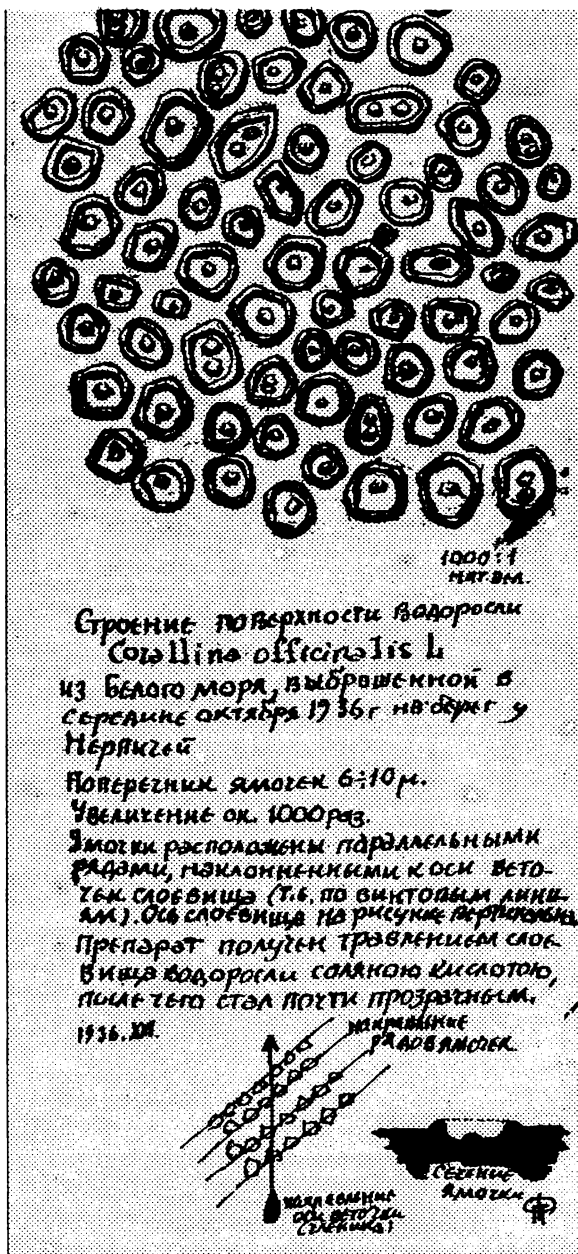 1000:1
нат. вел.
Строение поверхности водоросли
Corallina officinalis L
из Белого моря, выброшенной в
середине октября 1936 г на берег у
Нерпичей
Поперечник ямочек 6÷10 μ.
Увеличение ок. 1000 раз.
Ямочки расположены параллельными
рядами, наклоненными к оси вето-
чек слоевища (т.е. по винтовым лини-
ям). Ось слоевища на рисунке вертикальна
Препарат получен травлением слое-
вища водоросли соляною кислотою,
после чего стал почти прозрачным.
1936.XII.
направление
рядов ямочек
направление
оси веточки
(членика)
сечение
ямочки